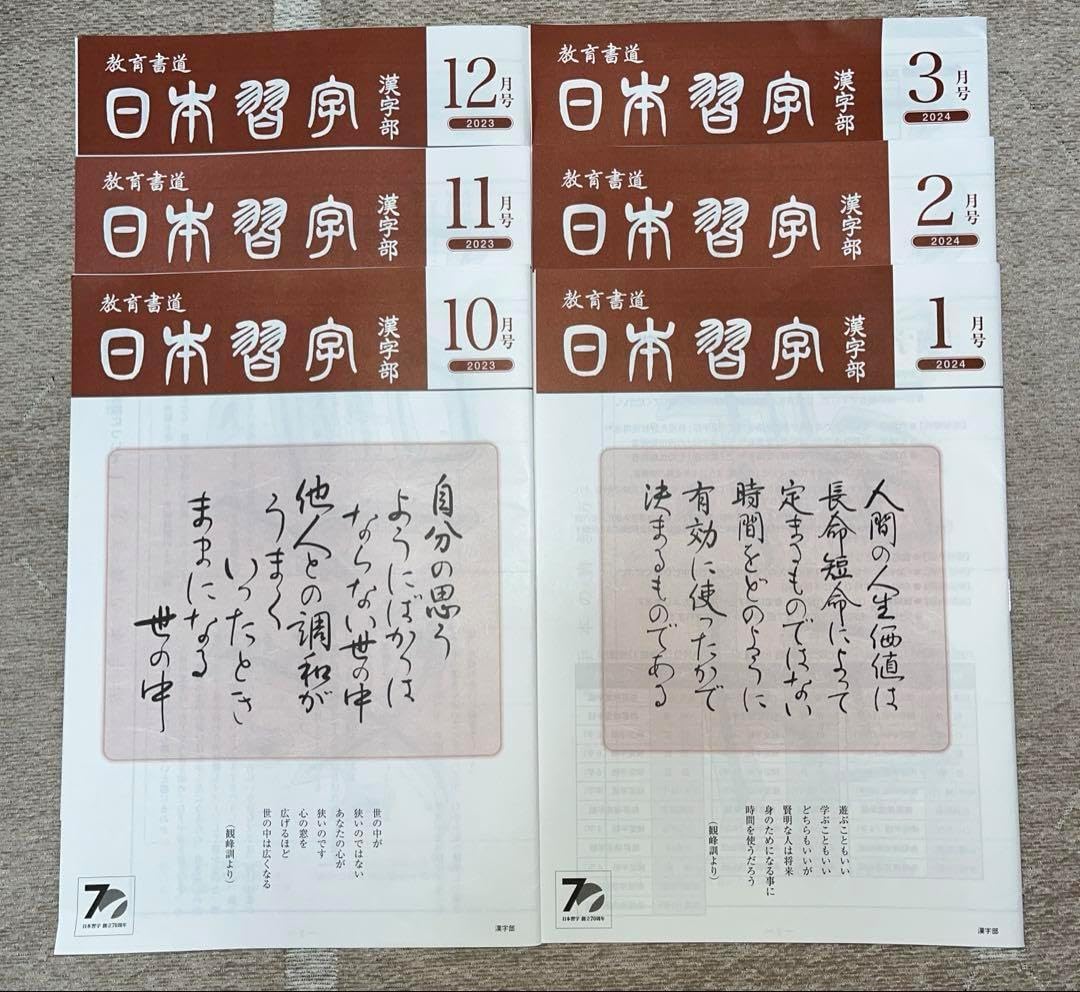 教育書道
日本習字
漢字部
12月号
2023
教育書道
日本習字
漢字部
11月号
2023
教育書道
日本習字
漢字部
10月号
2023
自分の思う
ようにばかりは
ならない世の中
他人との調和が
うまく
いったとき
ままになる
世の中
世の中が
狭いのではない
あなたの心が
狭いのです
心の窓を
広げるほど
世の中は広くなる
(観峰訓より)
70
日本習字 創立70周年
漢字部
教育書道
日本習字
漢字部
3月号
2024
教育書道
日本習字
漢字部
2月号
2024
教育書道
日本習字
漢字部
1月号
2024
人間の人生価値は
長命短命によって
定まるものではない
時間をどのように
有効に使ったかで
決まるものである
遊ぶこともいい
学ぶこともいい
どちらもいいが
賢明な人は将来
身のためになる事に
時間を使うだろう
(観峰訓より)
70
日本習字 創立70周年
漢字部